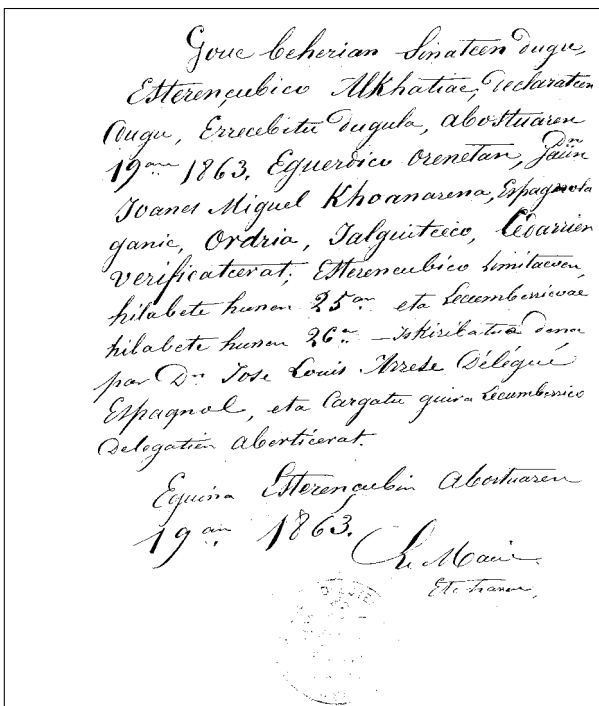 Gouc beherian Sinatcen dugu,
Esterençubico Alkhatiac, declaratcen
dugu, Errecebitu dugula, abostuaren
19an 1863. Eguerdico orenetan, Jaün Dn
Joanes Miguel Khoanarena, Espagnola
ganic, Ordria, Jalguiteco, Cedarrien
verificatcerat; Esterencubico limitaeven,
hilabete hunen 25an eta Lecumberricoac
hilabete hunen 26an — Iskiribatua dena
par Dn Jose Louis Arrese Délégué
Espagnol, eta Cargatu guira Lecumberrico
Delegatien aberticerat.
Eguina Esterençubin abostuaren
19an 1863.
Le Maire